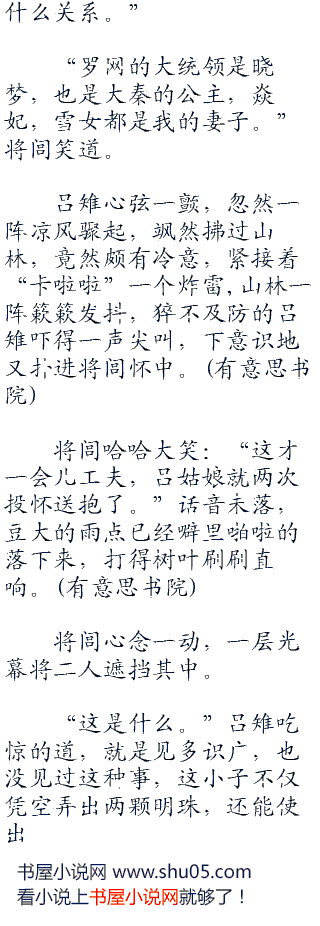 什么关系。”
“罗网的大统领是晓
梦，也是大秦的公主，焱
妃，雪女都是我的妻子。”
将闾笑道。
吕雉心弦一颤，忽然一
阵凉风骤起，飒然拂过山
林，竟然颇有冷意，紧接着
“卡啦啦”一个炸雷,山林一
阵簌簌发抖，猝不及防的吕
雉吓得一声尖叫，下意识地
又扑进将闾怀中。(有意思书
院)
将闾哈哈大笑：“这才
一会儿工夫，吕姑娘就两次
投怀送抱了。”话音未落，
豆大的雨点已经噼里啪啦的
落下来，打得树叶刷刷直
响。(有意思书院)
将闾心念一动，一层光
幕将二人遮挡其中。
“这是什么。”吕雉吃
惊的道，就是见多识广，也
没见过这种事，这小子不仅
凭空弄出两颗明珠，还能使
出
书屋小说网 www.shu05.com
看小说上书屋小说网就够了！